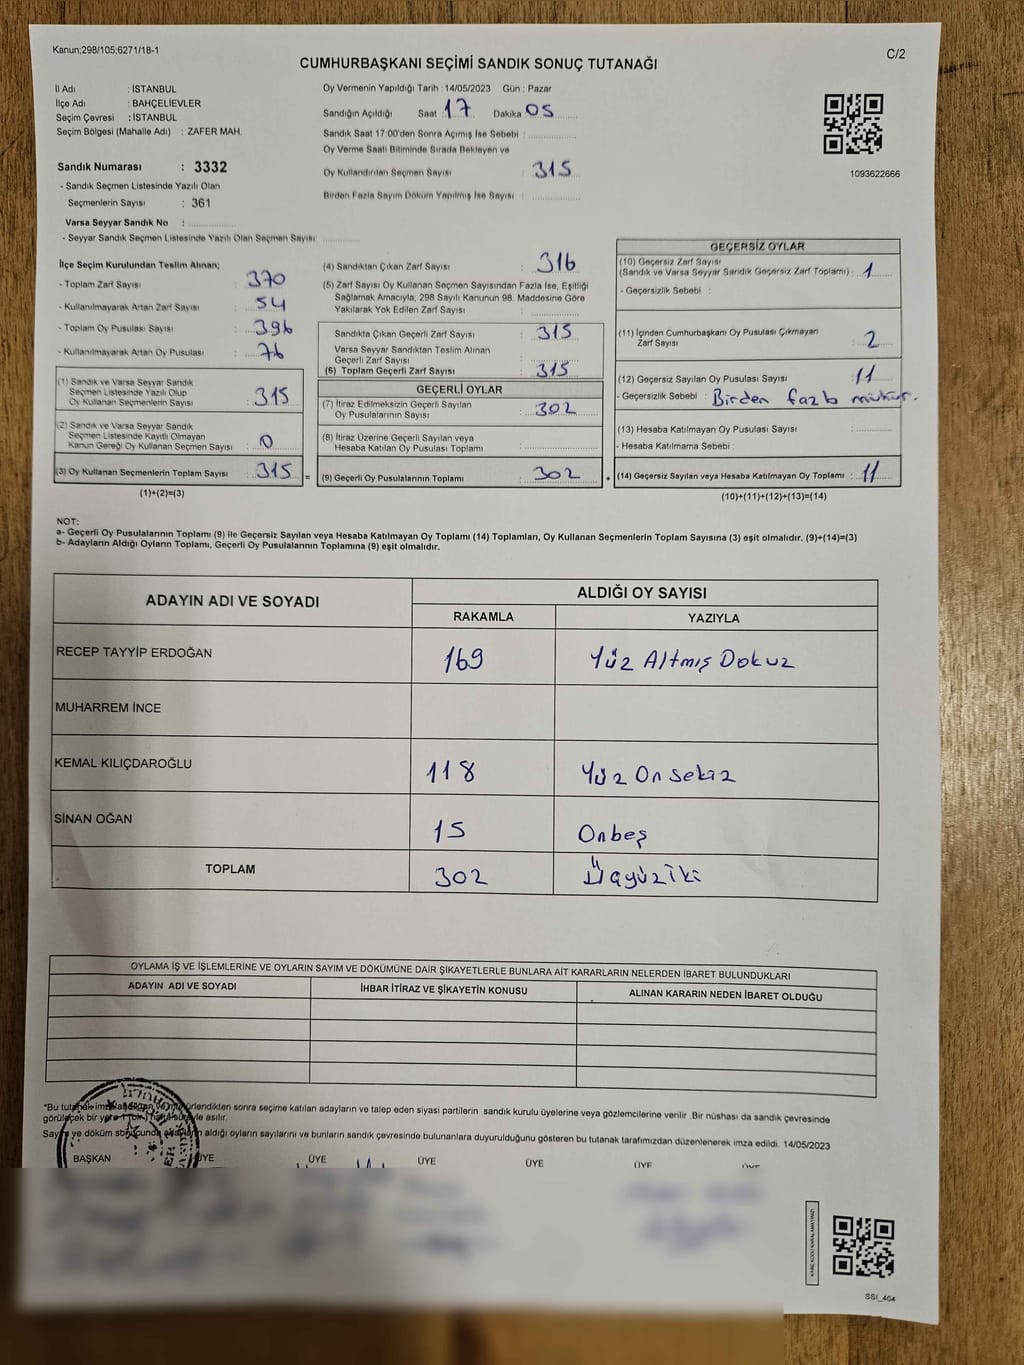 Kanun;298/105;6271/18-1
C/2
CUMHURBAŞKANI SEÇİMİ SANDIK SONUÇ TUTANAĞI
İl Adı : İSTANBUL
İlçe Adı : BAHÇELİEVLER
Seçim Çevresi : İSTANBUL
Seçim Bölgesi (Mahalle Adı) : ZAFER MAH.
Sandık Numarası : 3332
- Sandık Seçmen Listesinde Yazılı Olan
Seçmenlerin Sayısı : 361
Varsa Seyyar Sandık No :
- Seyyar Sandık Seçmen Listesinde Yazılı Olan Seçmen Sayısı:
Oy Vermenin Yapıldığı Tarih : 14/05/2023 Gün : Pazar
Sandığın Açıldığı Saat 17 Dakika 05
Sandık Saat 17:00'den Sonra Açımış İse Sebebi :
Oy Verme Saati Bitiminde Sırada Bekleyen ve
Oy Kullandırılan Seçmen Sayısı : 315
Birden Fazla Sayım Döküm Yapılmış İse Sayısı :
1093622666
İlçe Seçim Kurulundan Teslim Alınan;
- Toplam Zarf Sayısı : 370
- Kullanılmayarak Artan Zarf Sayısı : 54
- Toplam Oy Pusulası Sayısı : 396
- Kullanılmayarak Artan Oy Pusulası : 76
(1) Sandık ve Varsa Seyyar Sandık
Seçmen Listesinde Yazılı Olup
Oy Kullanan Seçmenlerin Sayısı : 315
(2) Sandık ve Varsa Seyyar Sandık
Seçmen Listesinde Kayıtlı Olmayan
Kanun Gereği Oy Kullanan Seçmen Sayısı : 0
(3) Oy Kullanan Seçmenlerin Toplam Sayısı : 315 =
(1)+(2)=(3)
(4) Sandıktan Çıkan Zarf Sayısı : 316
(5) Zarf Sayısı Oy Kullanan Seçmen Sayısından Fazla İse, Eşitliği
Sağlamak Amacıyla; 298 Sayılı Kanunun 98. Maddesine Göre
Yakılarak Yok Edilen Zarf Sayısı :
Sandıkta Çıkan Geçerli Zarf Sayısı : 315
Varsa Seyyar Sandıktan Teslim Alınan
Geçerli Zarf Sayısı :
(6) Toplam Geçerli Zarf Sayısı : 315
GEÇERLİ OYLAR
(7) İtiraz Edilmeksizin Geçerli Sayılan
Oy Pusulalarının Sayısı : 302
(8) İtiraz Üzerine Geçerli Sayılan veya
Hesaba Katılan Oy Pusulası Toplamı :
(9) Geçerli Oy Pusulalarının Toplamı : 302 +
GEÇERSİZ OYLAR
(10) Geçersiz Zarf Sayısı
(Sandık ve Varsa Seyyar Sandık Geçersiz Zarf Toplamı) : 1
- Geçersizlik Sebebi :
(11) İçinden Cumhurbaşkanı Oy Pusulası Çıkmayan
Zarf Sayısı : 2
(12) Geçersiz Sayılan Oy Pusulası Sayısı : 11
- Geçersizlik Sebebi : Birden fazla mühür.
(13) Hesaba Katılmayan Oy Pusulası Sayısı :
- Hesaba Katılmama Sebebi :
(14) Geçersiz Sayılan veya Hesaba Katılmayan Oy Toplamı : 11
(10)+(11)+(12)+(13)=(14)
NOT:
a- Geçerli Oy Pusulalarının Toplamı (9) ile Geçersiz Sayılan veya Hesaba Katılmayan Oy Toplamı (14) Toplamları, Oy Kullanan Seçmenlerin Toplam Sayısına (3) eşit olmalıdır. (9)+(14)=(3)
b- Adayların Aldığı Oyların Toplamı, Geçerli Oy Pusulalarının Toplamına (9) eşit olmalıdır.
ADAYIN ADI VE SOYADI
ALDIĞI OY SAYISI
RAKAMLA YAZIYLA
RECEP TAYYİP ERDOĞAN 169 Yüz Altmış Dokuz
MUHARREM İNCE
KEMAL KILIÇDAROĞLU 118 Yüz On sekiz
SİNAN OĞAN 15 Onbeş
TOPLAM 302 Üçyüziki
OYLAMA İŞ VE İŞLEMLERİNE VE OYLARIN SAYIM VE DÖKÜMÜNE DAİR ŞİKAYETLERLE BUNLARA AİT KARARLARIN NELERDEN İBARET BULUNDUKLARI
ADAYIN ADI VE SOYADI İHBAR İTİRAZ VE ŞİKAYETİN KONUSU ALINAN KARARIN NEDEN İBARET OLDUĞU
*Bu tutanak sonra seçime katılan adayların ve talep eden siyasi partilerin sandık kurulu üyelerine veya gözlemcilerine verilir .Bir nüshası da sandık çevresinde
görülecek bir yere asılır.
Sayım ve döküm sonucunda adayların aldığı oyların sayılarını ve bunların sandık çevresinde bulunanlara duyurulduğunu gösteren bu tutanak tarafımızdan düzenlenerek imza edildi. 14/05/2023
BAŞKAN ÜYE ÜYE ÜYE ÜYE ÜYE ÜYE
SSI_404